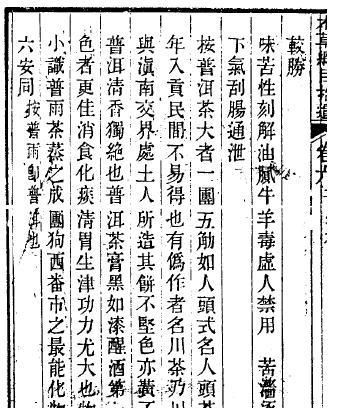 本草綱目拾遺 卷六
較勝
味苦性刻解油膩牛羊毒虛人禁用 苦澀
下氣刮腸通泄
按普洱茶大者一團五觔如人頭式名人頭茶
年入貢民間不易得也有僞作者名川茶乃川
與滇南交界處土人所造其餅不堅色亦黃
普洱清香獨絶也普洱茶膏黑如漆醒酒第
色者更佳消食化痰清胃生津功力尤大也物
小識普雨茶蒸之成團狗西番市之最能化物
六安同 按普雨即普洱也